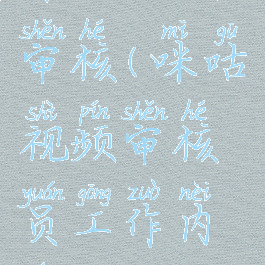 shěn hé mī gū
审核(咪咕
shì pín shěn hé
视频审核
yuán gōng zuò nèi
员工作内